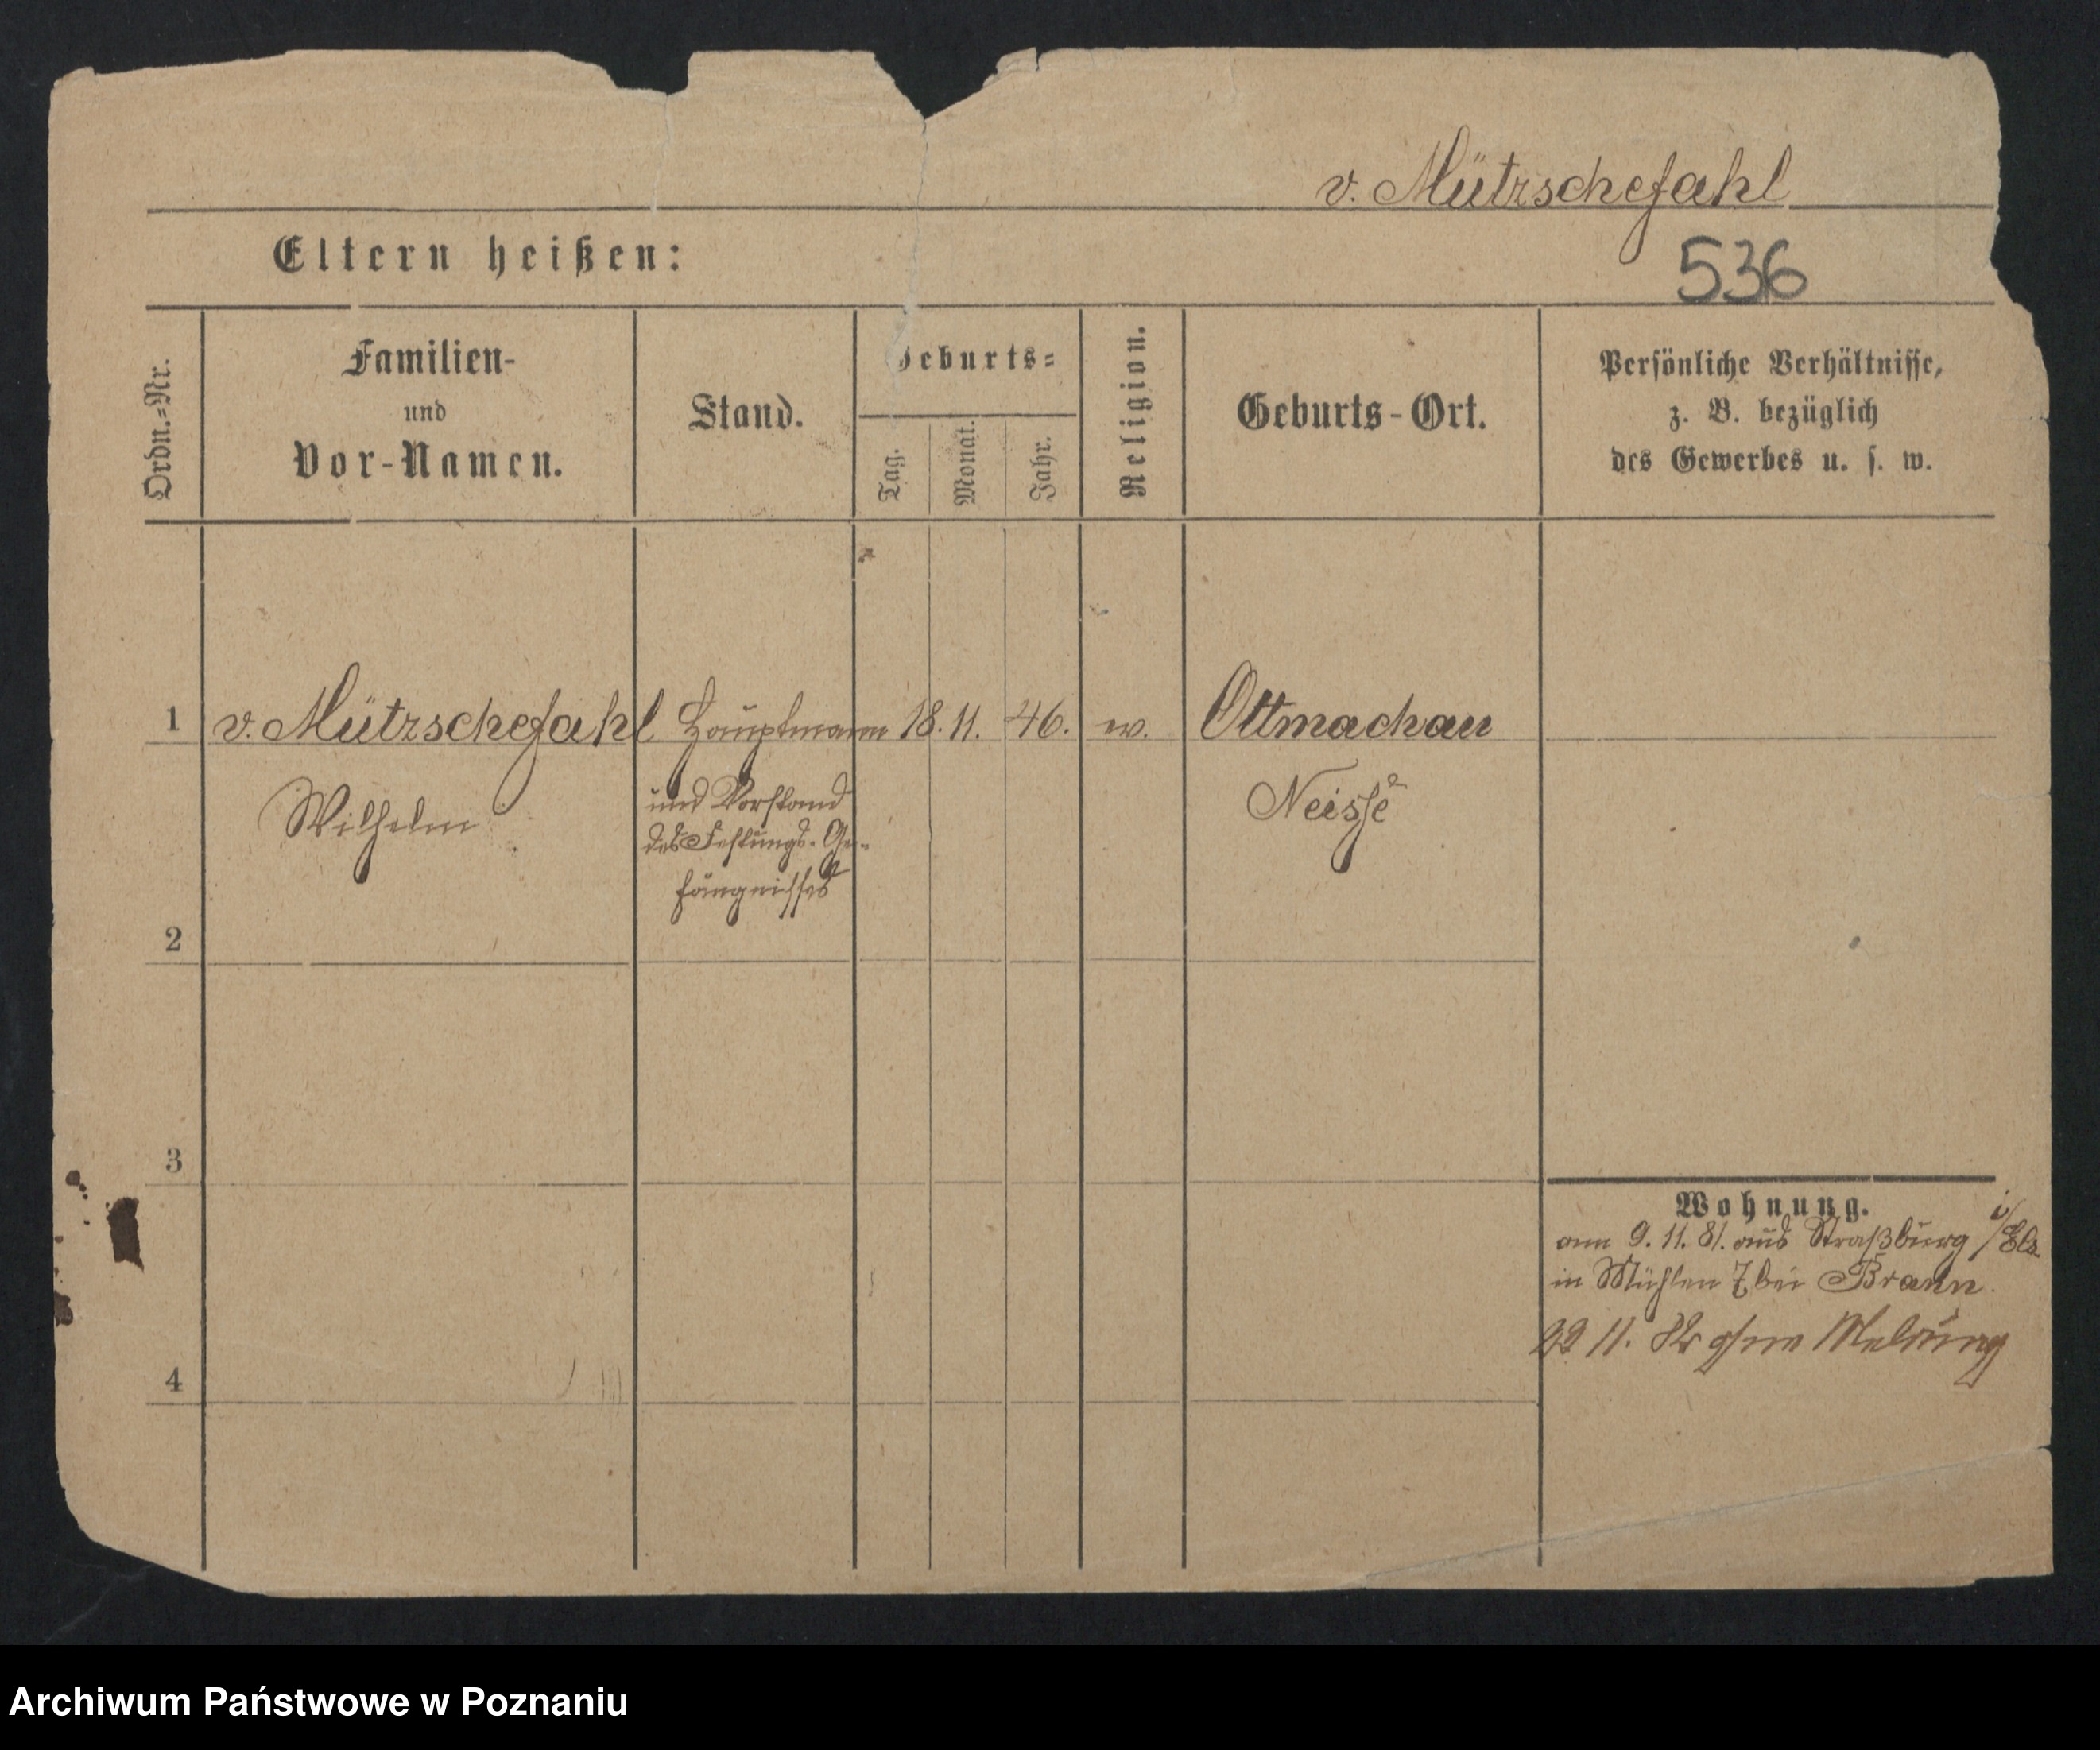 v. Mützschefahl
Eltern heißen:
536
Ordn.=Nr.
Familien-
und
Vor-Namen.
Stand.
Geburts=
Tag.
Monat.
Jahr.
Religion.
Geburts-Ort.
Persönliche Verhältnisse,
z. B. bezüglich
des Gewerbes u. s. w.
1 v. Mützschefahl Hauptmann 18. 11. 46. Ottmachau
Wilhelm
und Vorstand
des Festungs-Ge-
fängnisses
Neisse
2
3
4
Wohnung.
am 9. 11. 81. aus Straßburg i/Els.
in Mühlen 7 bei Brann
11. 82 ohne Meldung
Archiwum Państwowe w Poznaniu